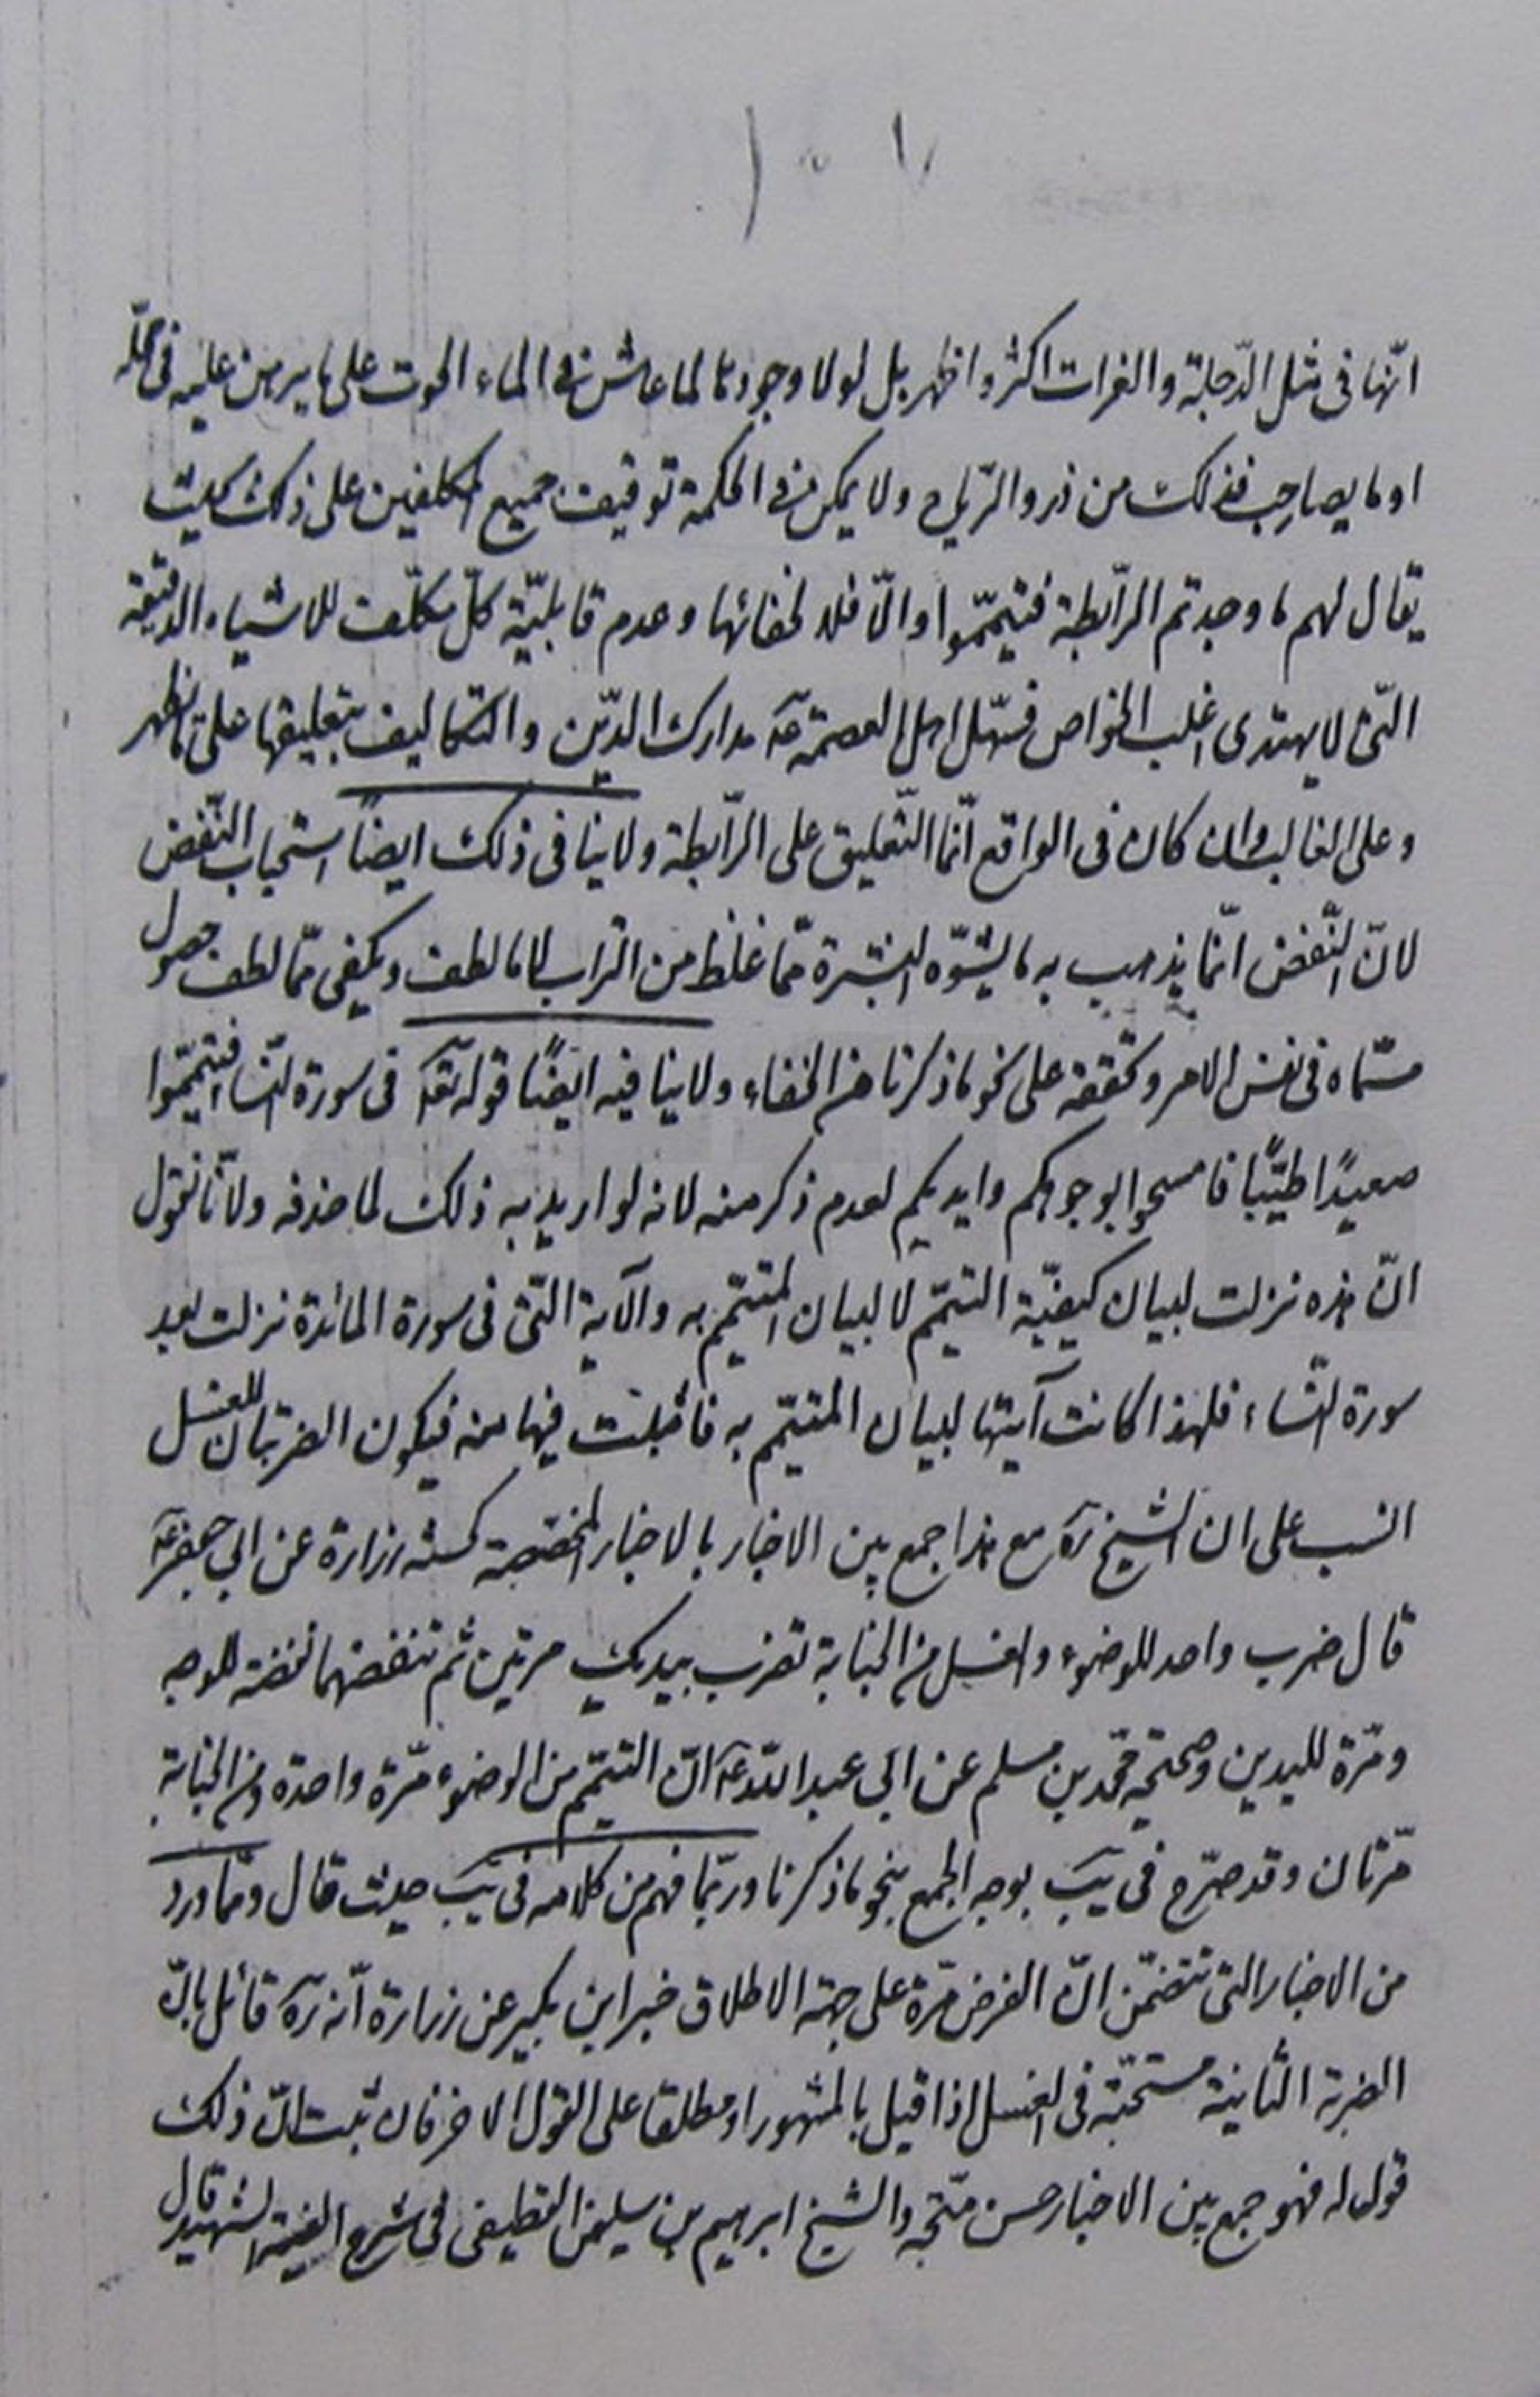 انّها فى مثل الدّجلة والفرات اكثر واظهر بل لولا وجودها لما عاش فى الماء الحوت على ما يبرهن عليه فى محلّه
او ما يصاحب ذلك من ذرو الرّياح ولا يمكن فى الحكمة توقيف جميع المكلفين على ذلك بحيث
يقال لهم ما وجدتم الرّابطة فتيمّموا والّا فلا لخفائها وعدم قابليّة كلّ مكلّف للاشياء الدقيقة
التى لا يهتدى اغلب الخواص فسهّل اهل العصمة عۤ مدارك الدّين والتكاليف بتعليقها على ما ظهر
وعلى الغالب وان كان فى الواقع انّما التّعليق على الرّابطة ولا ينافى ذلك ايضاً استحباب النّفض
لانّ النّفض انّما يذهب به ما يشوّه البشرة ممّا غلظ من التراب لا ما لطف ويكفى ممّا لطف حصول
مسمّاه فى نفس الامر وتحققه على نحو ما ذكرنا من الخفاء ولا ينافيه ايضًا قوله تعۤ فى سورة النّساء فتيمّموا
صعيدًا طيّبًا فامسحوا بوجوهكم وايديكم لعدم ذكر منه لانه لو اريد به ذلك لما حذفه ولانّا نقول
انّ هذه نزلت لبيان كيفيّة التيمّم لا لبيان المتيمّم به والآية التى فى سورة المائدة نزلت بعد
سورة النّساء فلهذا كانت آيتها لبيان المتيمّم به فاثبتت فيها منه فيكون الضربتان للغسل
انسب على ان الشيخ رۤه مع هذا جمع بين الاخبار بالاخبار المختصة كحسنة زرارة عن ابي جعفر عۤ
قال ضرب واحد للوضوء والغسل من الجنابة تضرب بيديك مرتين ثم تنفضهما نفضة للوجه
ومرّة لليدين وصحيحة محمّد بن مسلم عن ابى عبد الله عۤ انّ التيمّم من الوضوء مرّة واحدة ومن الجنابة
مرّتان وقد صرّح فى يب بوجه الجمع بنحو ما ذكرنا وربّما فهم من كلامه فى يب حيث قال وممّا ورد
من الاخبار التى تتضمّن انّ الفرض مرّة على جهة الاطلاق خبر ابن بكير عن زرارة انّه رۤه قائل بانّ
الضربة الثانية مستحبّة فى الغسل اذا قيل بالمشهور او مطلقا على القول الاخر فان ثبت انّ ذلك
قول له فهو جمع بين الاخبار حسن متّجه والشيخ ابرهيم بن سليمن القطيفى فى شرح الفية الشهيد قال